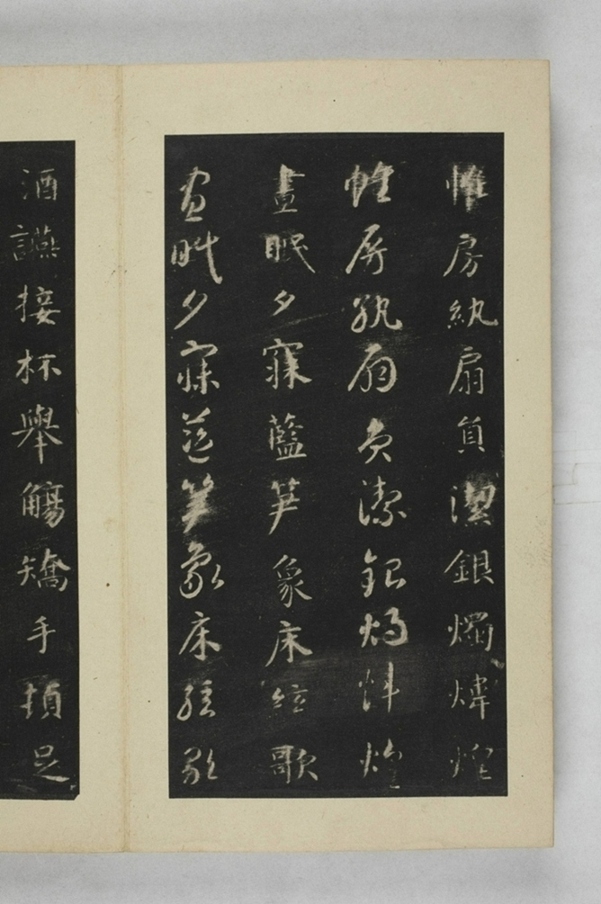 帷房紈扇員潔銀燭煒煌
帷房紈扇員潔銀燭煒煌
晝眠夕寐藍笋象床絃歌
晝眠夕寐藍笋象床絃歌
酒讌接杯舉觴矯手頓足